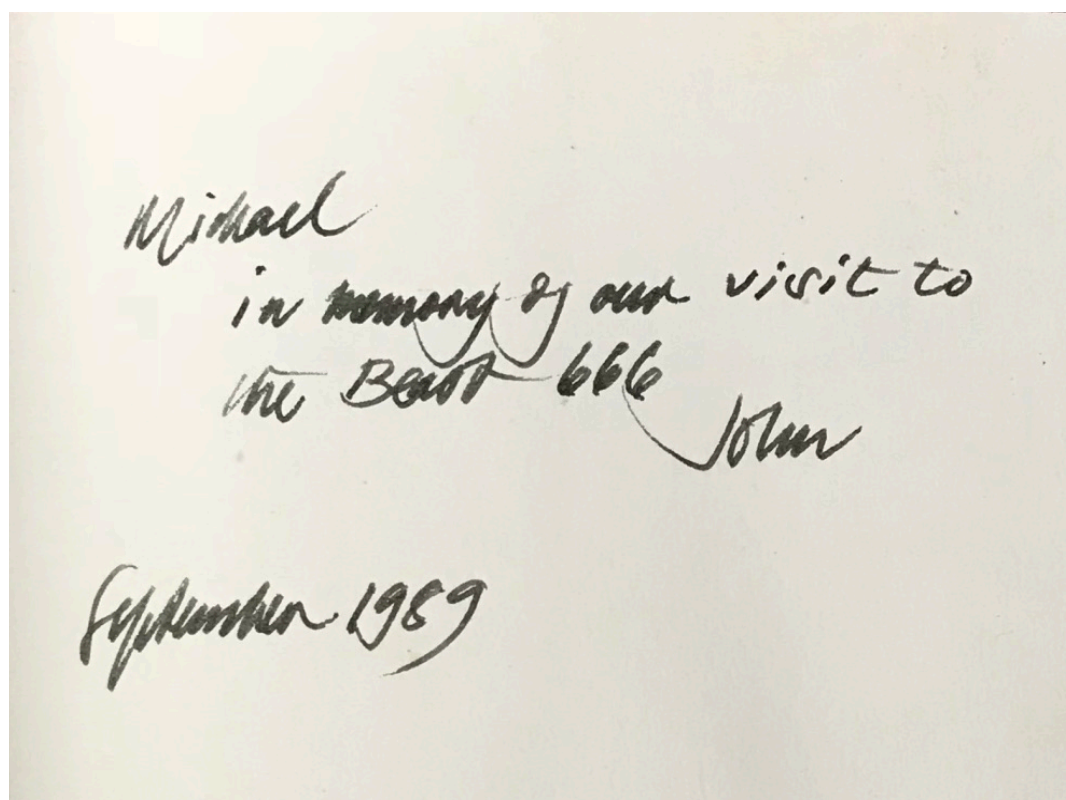 Michael
in memory of our visit to
the Beast 666
John
September 1989